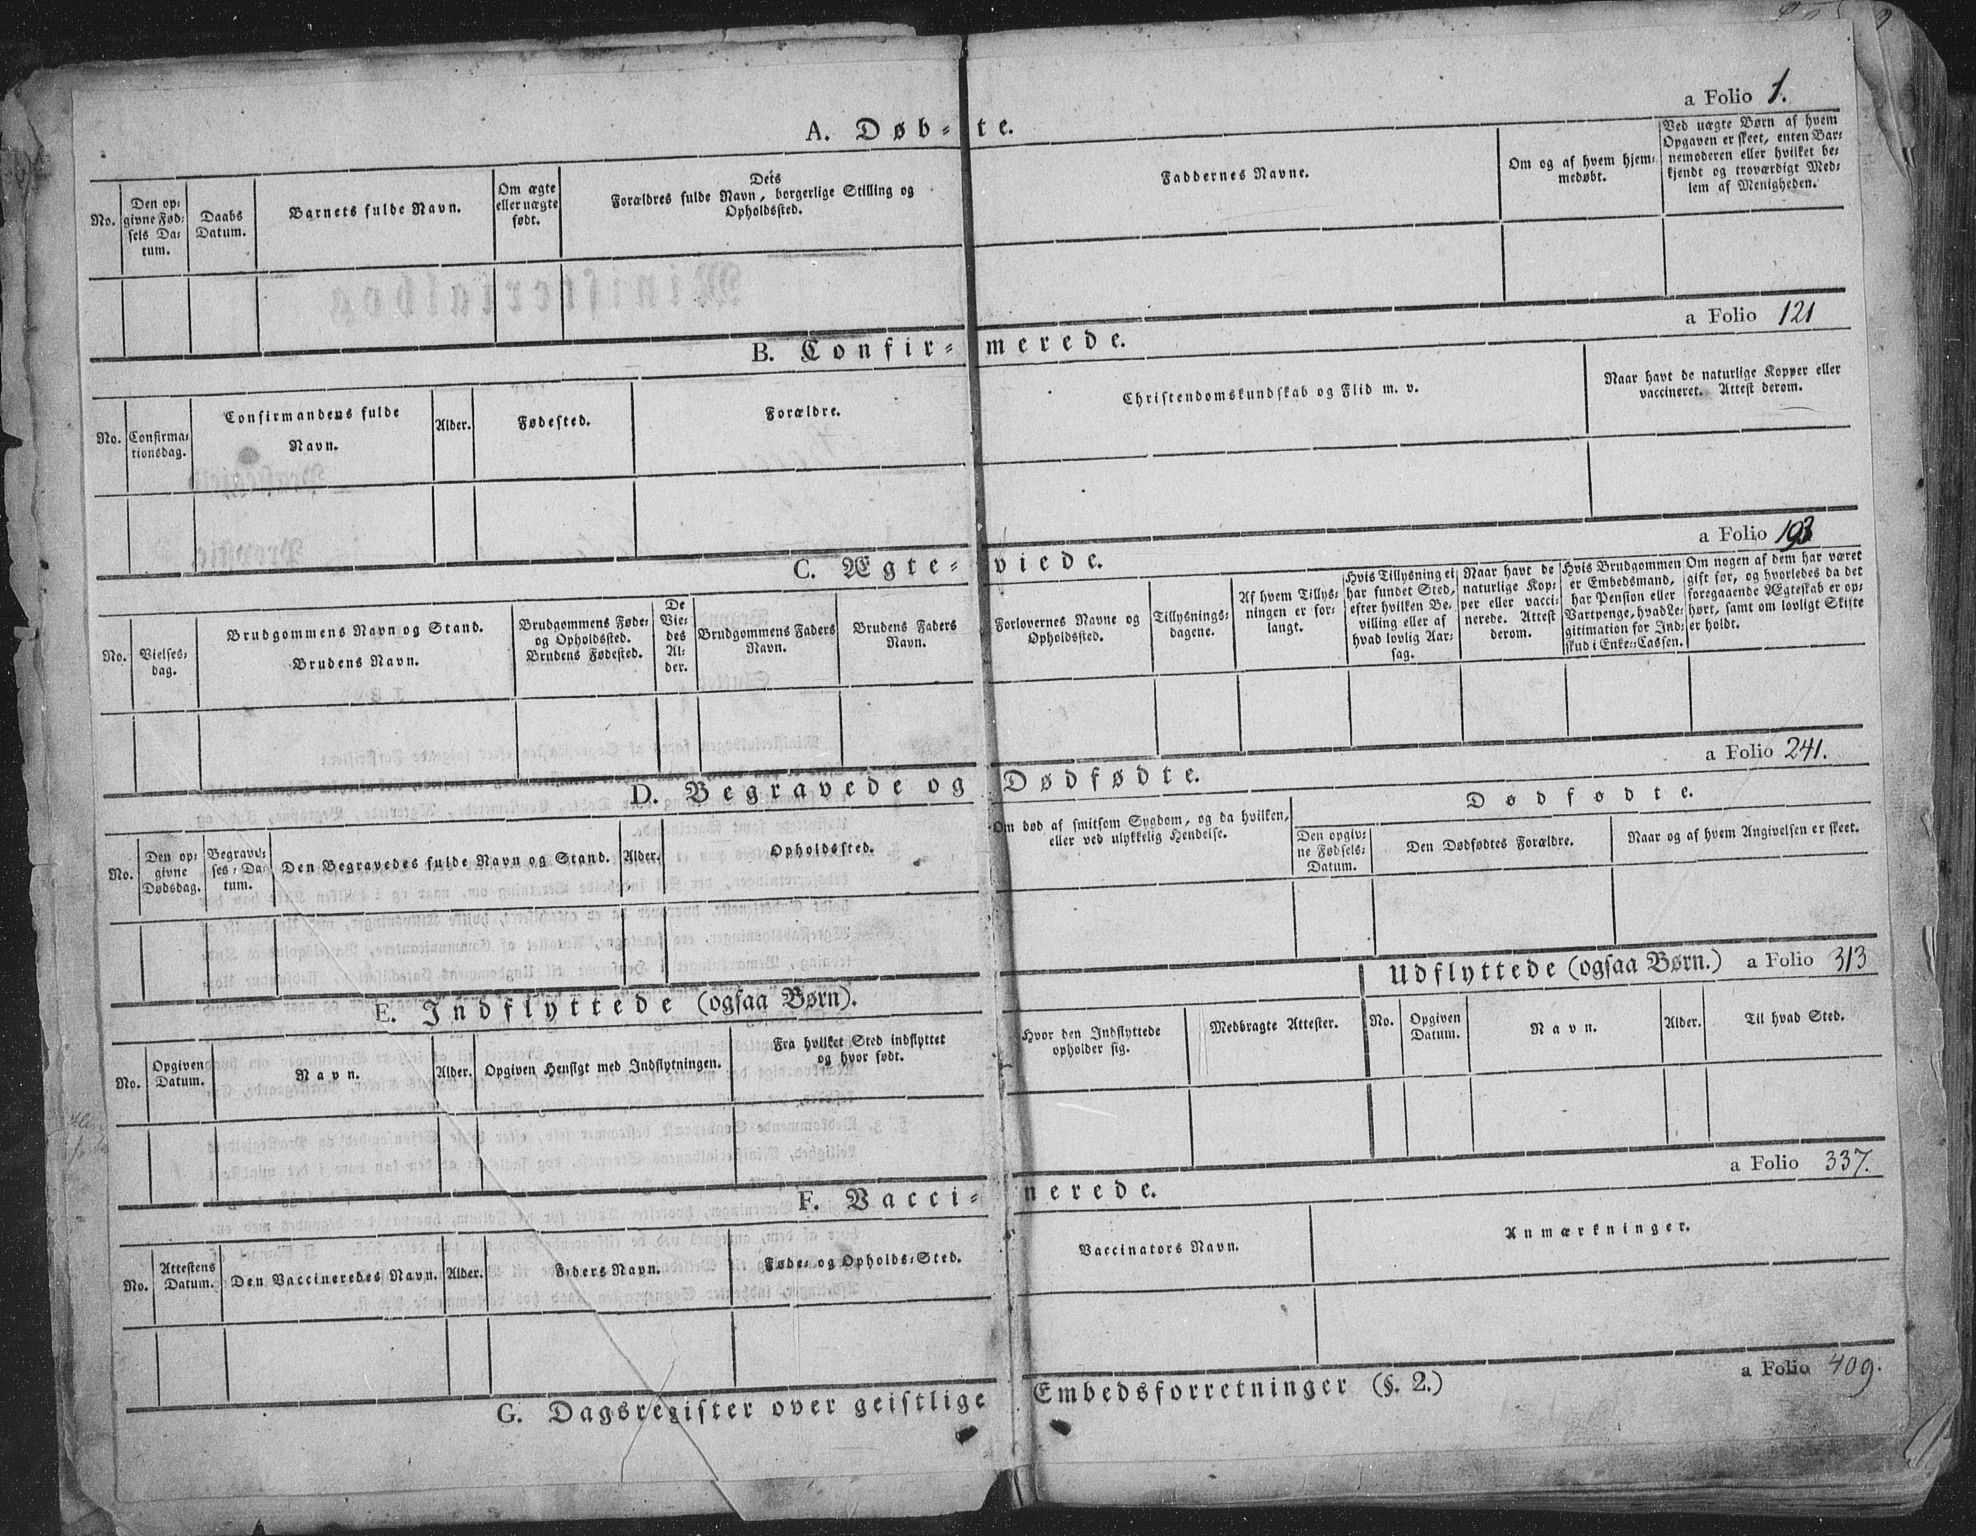 a Folio 1.
A. Døb-te.
No.
Den op-
givne Fød-
sels Da-
tum.
Daabs
Datum.
Barnets fulde Navn.
Om ægte
eller uægte
født.
Dets
Forældres fulde Navn, borgerlige Stilling og
Opholdssted.
Faddernes Navne.
Om og af hvem hjem-
medøbt.
Ved uægte Børn af hvem
Opgaven er skeet, enten Bar-
nemoderen eller hvilket be-
kjendt og troværdigt Med-
lem af Menigheden.
a Folio 121
B. Confir-merede.
No.
Confirma-
tionsdag.
Confirmandens fulde
Navn.
Alder.
Fødested.
Forældre.
Christendomskundskab og Flid m. v.
Naar havt de naturlige Kopper eller
vaccineret. Attest derom.
a Folio 193
C. Ægte-viede.
No.
Vielses-
dag.
Brudgommens Navn og Stand.
Brudens Navn.
Brudgommens Føde-
og Opholdssted.
Brudens Fødested.
De
Vie-
des
Al-
der.
Brudgommens Faders
Navn.
Brudens Faders
Navn.
Forlovernes Navne og
Opholdssted.
Tillysnings-
dagene.
Af hvem Tillys-
ningen er for-
langt.
Hvis Tillysning ei
har fundet Sted,
efter hvilken Be-
villing eller af
hvad lovlig Aar-
sag.
Naar havt de
naturlige Kop-
per eller vacci-
nerede. Attest
derom.
Hvis Brudgommen
er Embedsmand,
har Pension eller
Vartpenge, hvad Le-
gitimation for Ind-
skud i Enke-Cassen.
Om nogen af dem har været
gift før, og hvorledes da det
foregaaende Ægteskab er op-
hørt, samt om lovligt Skifte
er holdt.
a Folio 241.
D. Begravede og Dødfødte.
No.
Den op-
givne
Dødsdag.
Begravel-
ses-Da-
tum.
Den Begravedes fulde Navn og Stand.
Alder.
Opholdssted.
Om død af smitsom Sygdom, og da hvilken,
eller ved ulykkelig Hendelse.
Dødfødte.
Den opgiv-
ne Fødsels-
Datum.
Den Dødfødtes Forældre.
Naar og af hvem Angivelsen er skeet.
E. Indflyttede (ogsaa Børn).
Udflyttede (ogsaa Børn.) a Folio 313
No.
Opgiven
Datum.
Navn.
Alder.
Opgiven Hensigt med Indflytningen.
Fra hvilket Sted indflyttet
og hvor født.
Hvor den Indflyttede
opholder sig.
Medbragte Attester.
No.
Opgiven
Datum.
Navn.
Alder.
Til hvad Sted.
a Folio 337.
F. Vacci-nerede.
No.
Attestens
Datum.
Den Vaccineredes Navn.
Alder.
Faders Navn.
Føde- og Opholds-Sted.
Vaccinators Navn.
Anmærkninger.
a Folio 409.
G. Dagsregister over geistlige Embedsforretninger (§. 2.)